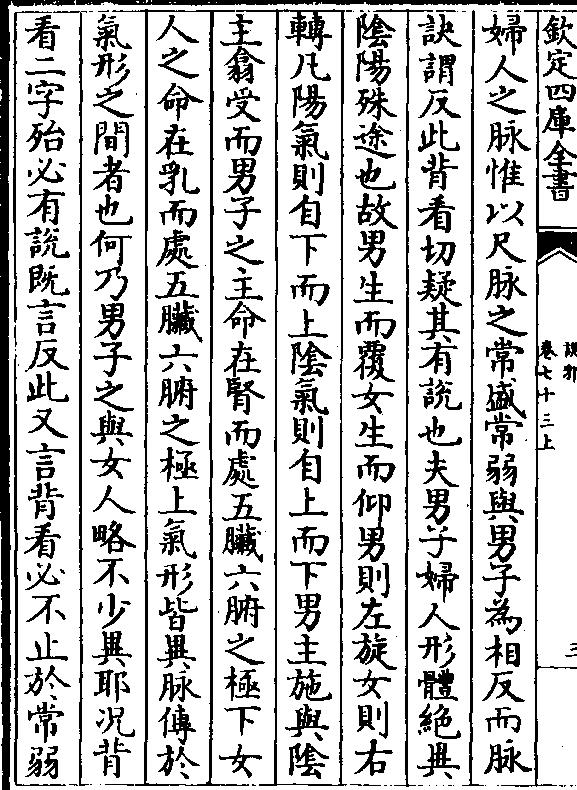 欽定四庫全書
說郛
卷七十三上
三
婦人之脉惟以尺脉之常盛常弱與男子為相反而脉
訣謂反此背看切疑其有說也夫男子婦人形體絶異
陰陽殊途也故男生而覆女生而仰男則左旋女則右
轉凡陽氣則自下而上陰氣則自上而下男主施與陰
主翕受而男子之主命在腎而處五臟六腑之極下女
人之命在乳而處五臟六腑之極上氣形皆異脉傳於
氣形之間者也何乃男子之與女人略不少異耶况背
看二字殆必有說既言反此又言背看必不止於常弱